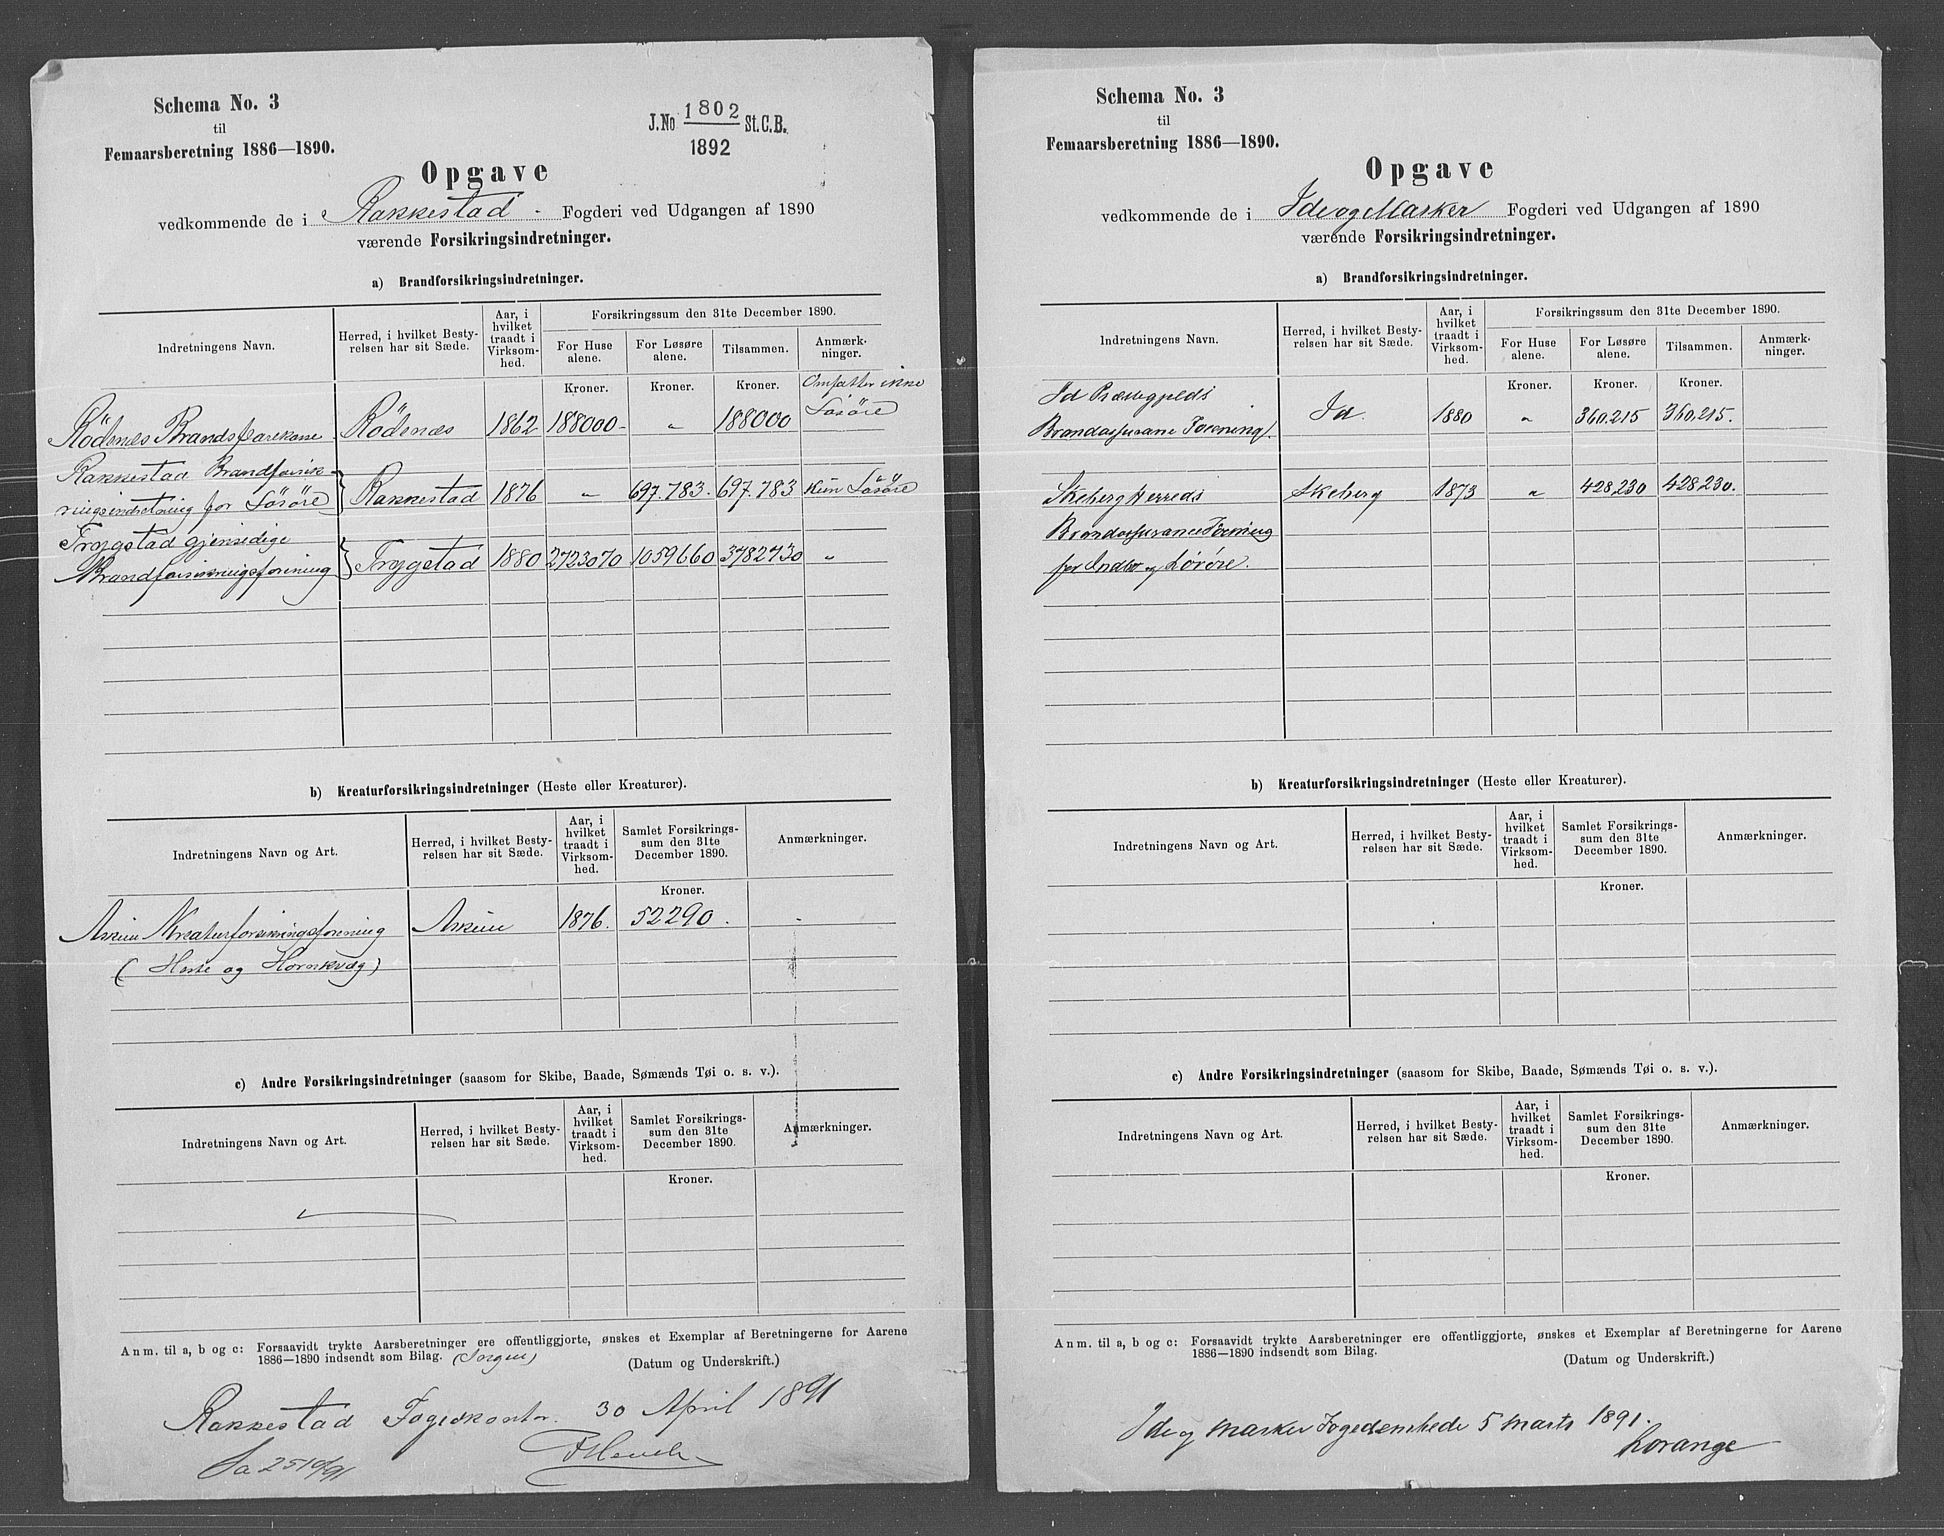 Schema No. 3
til
Femaarsberetning 1886—1890.
J.No 1802 St.C.B.
1892
Opgave
vedkommende de i Rakkestad Fogderi ved Udgangen af 1890
værende Forsikringsindretninger.
a) Brandforsikringsindretninger.
Indretningens Navn.
Herred, i hvilket Besty-
relsen har sit Sæde.
Aar, i
hvilket
traadt i
Virksom-
hed.
Forsikringssum den 31te December 1890.
For Huse
alene.
For Løsøre
alene.
Tilsammen.
Anmærk-
ninger.
Kroner. Kroner. Kroner. Omfatter ikke
Rödenæs Brandskarekasse Rödenæs 1862 188000 - „ 188000 Lösöre
Rakkestad Brandforsik-
ringsindretning for Lösöre } Rakkestad 1876 „ 697.783. 697.783 Kun Lösöre
Trygstad gjensidige
Brandforsikringsforening } Trygstad 1880 2723070 1059660 3782730 „
b) Kreaturforsikringsindretninger (Heste eller Kreaturer).
Indretningens Navn og Art.
Herred, i hvilket Besty-
relsen har sit Sæde.
Aar, i
hvilket
traadt i
Virksom-
hed.
Samlet Forsikrings-
sum den 31te
December 1890.
Anmærkninger.
Kroner.
Askim Kreaturforsikringsforening Askim 1876. 52290.
(Heste og Hornkvæg)
c) Andre Forsikringsindretninger (saasom for Skibe, Baade, Sømænds Tøi o. s. v.).
Indretningens Navn og Art.
Herred, i hvilket Besty-
relsen har sit Sæde.
Aar, i
hvilket
traadt i
Virksom-
hed.
Samlet Forsikrings-
sum den 31te
December 1890.
Anmærkninger.
Kroner.
Anm. til a, b og c: Forsaavidt trykte Aarsberetninger ere offentliggjorte, ønskes et Exemplar af Beretningerne for Aarene
1886—1890 indsendt som Bilag. (Ingen)
(Datum og Underskrift.)
Rakkestad Fogedkontor 30 April 1891
Schema No. 3
til
Femaarsberetning 1886—1890.
Opgave
vedkommende de i Ide og Marker Fogderi ved Udgangen af 1890
værende Forsikringsindretninger.
a) Brandforsikringsindretninger.
Indretningens Navn.
Herred, i hvilket Besty-
relsen har sit Sæde.
Aar, i
hvilket
traadt i
Virksom-
hed.
Forsikringssum den 31te December 1890.
For Huse
alene.
For Løsøre
alene.
Tilsammen.
Anmærk-
ninger.
Kroner. Kroner. Kroner.
Id Præstegjelds
Brandassurance Forening. Id. 1880 „ 360.215 360.215.
Skeberg Herreds Skeberg 1873 „ 428.230 428.230.
Brandassurance Forening
for Indbo og Lösöre.
b) Kreaturforsikringsindretninger (Heste eller Kreaturer).
Indretningens Navn og Art.
Herred, i hvilket Besty-
relsen har sit Sæde.
Aar, i
hvilket
traadt i
Virksom-
hed.
Samlet Forsikrings-
sum den 31te
December 1890.
Anmærkninger.
Kroner.
c) Andre Forsikringsindretninger (saasom for Skibe, Baade, Sømænds Tøi o. s. v.).
Indretningens Navn og Art.
Herred, i hvilket Besty-
relsen har sit Sæde.
Aar, i
hvilket
traadt i
Virksom-
hed.
Samlet Forsikrings-
sum den 31te
December 1890.
Anmærkninger.
Kroner.
Anm. til a, b og c: Forsaavidt trykte Aarsberetninger ere offentliggjorte, ønskes et Exemplar af Beretningerne for Aarene
1886—1890 indsendt som Bilag.
(Datum og Underskrift.)
Ide og Marker Fogedembede 5 Marts 1891.
Lorange